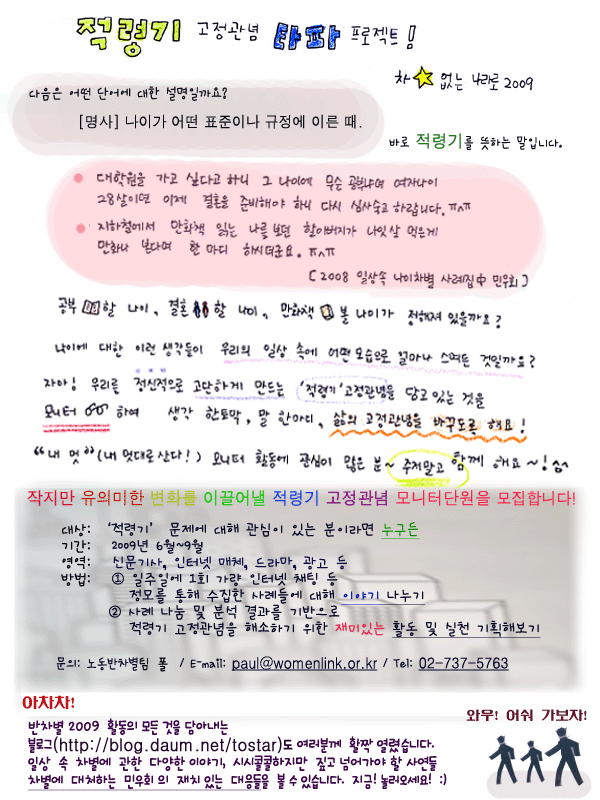 적령기 고정관념 타파 프로젝트!
차☆ 없는 나라로 2009
다음은 어떤 단어에 대한 설명일까요?
[명사] 나이가 어떤 표준이나 규정에 이른 때.
바로 적령기를 뜻하는 말입니다.
대학원을 가고 싶다고 하니 그 나이에 무슨 공부냐며 여자나이
28살이면 이제 결혼을 준비해야 하니 다시 심사숙고 하랍니다. ㅠㅅㅠ
지하철에서 만화책 읽는 나를 보던 할아버지가 나잇살 먹은게
만화나 본다며 한 마디 하시더군요. ㅠㅅㅠ
[2008 일상속 나이차별 사례집中 민우회]
공부 할 나이, 결혼 할 나이, 만화책 볼 나이가 정해져 있을까요?
나이에 대한 이런 생각들이 우리의 일상 속에 어떤 모습으로 얼마나 스며든 것일까요?
자아! 우리를 정신적으로 고단하게 만드는 '적령기' 고정관념을 담고 있는 것을
모니터 하여 생각 한토막, 말 한마디, 삶의 고정관념을 바꾸도록 해요!
"내 멋"(내 멋대로 산다!) 모니터 활동에 관심이 많은 분~ 주저말고 함께 해요~!
작지만 유의미한 변화를 이끌어낼 적령기 고정관념 모니터단원을 모집합니다!
대상: '적령기' 문제에 대해 관심이 있는 분이라면 누구든
기간: 2009년 6월~9월
영역: 신문기사, 인터넷 매체, 드라마, 광고 등
방법: ① 일주일에 1회 가량 인터넷 채팅 등
정모를 통해 수집한 사례들에 대해 이야기 나누기
② 사례 나눔 및 분석 결과를 기반으로
적령기 고정관념을 해소하기 위한 재미있는 활동 및 실천 기획해보기
문의: 노동반차별팀 폴 / E-mail: paul@womenlink.or.kr / Tel: 02-737-5763
아차차!
와우! 어숴 가보자!
반차별 2009 활동의 모든 것을 담아내는
블로그(http://blog.daum.net/tostar)도 여러분께 활짝 열렸습니다.
일상 속 차별에 관한 다양한 이야기, 시시콜콜하지만 짚고 넘어가야 할 사연들
차별에 대처하는 민우회의 재치 있는 대응들을 볼 수 있습니다. 지금! 눌러오세요! :)